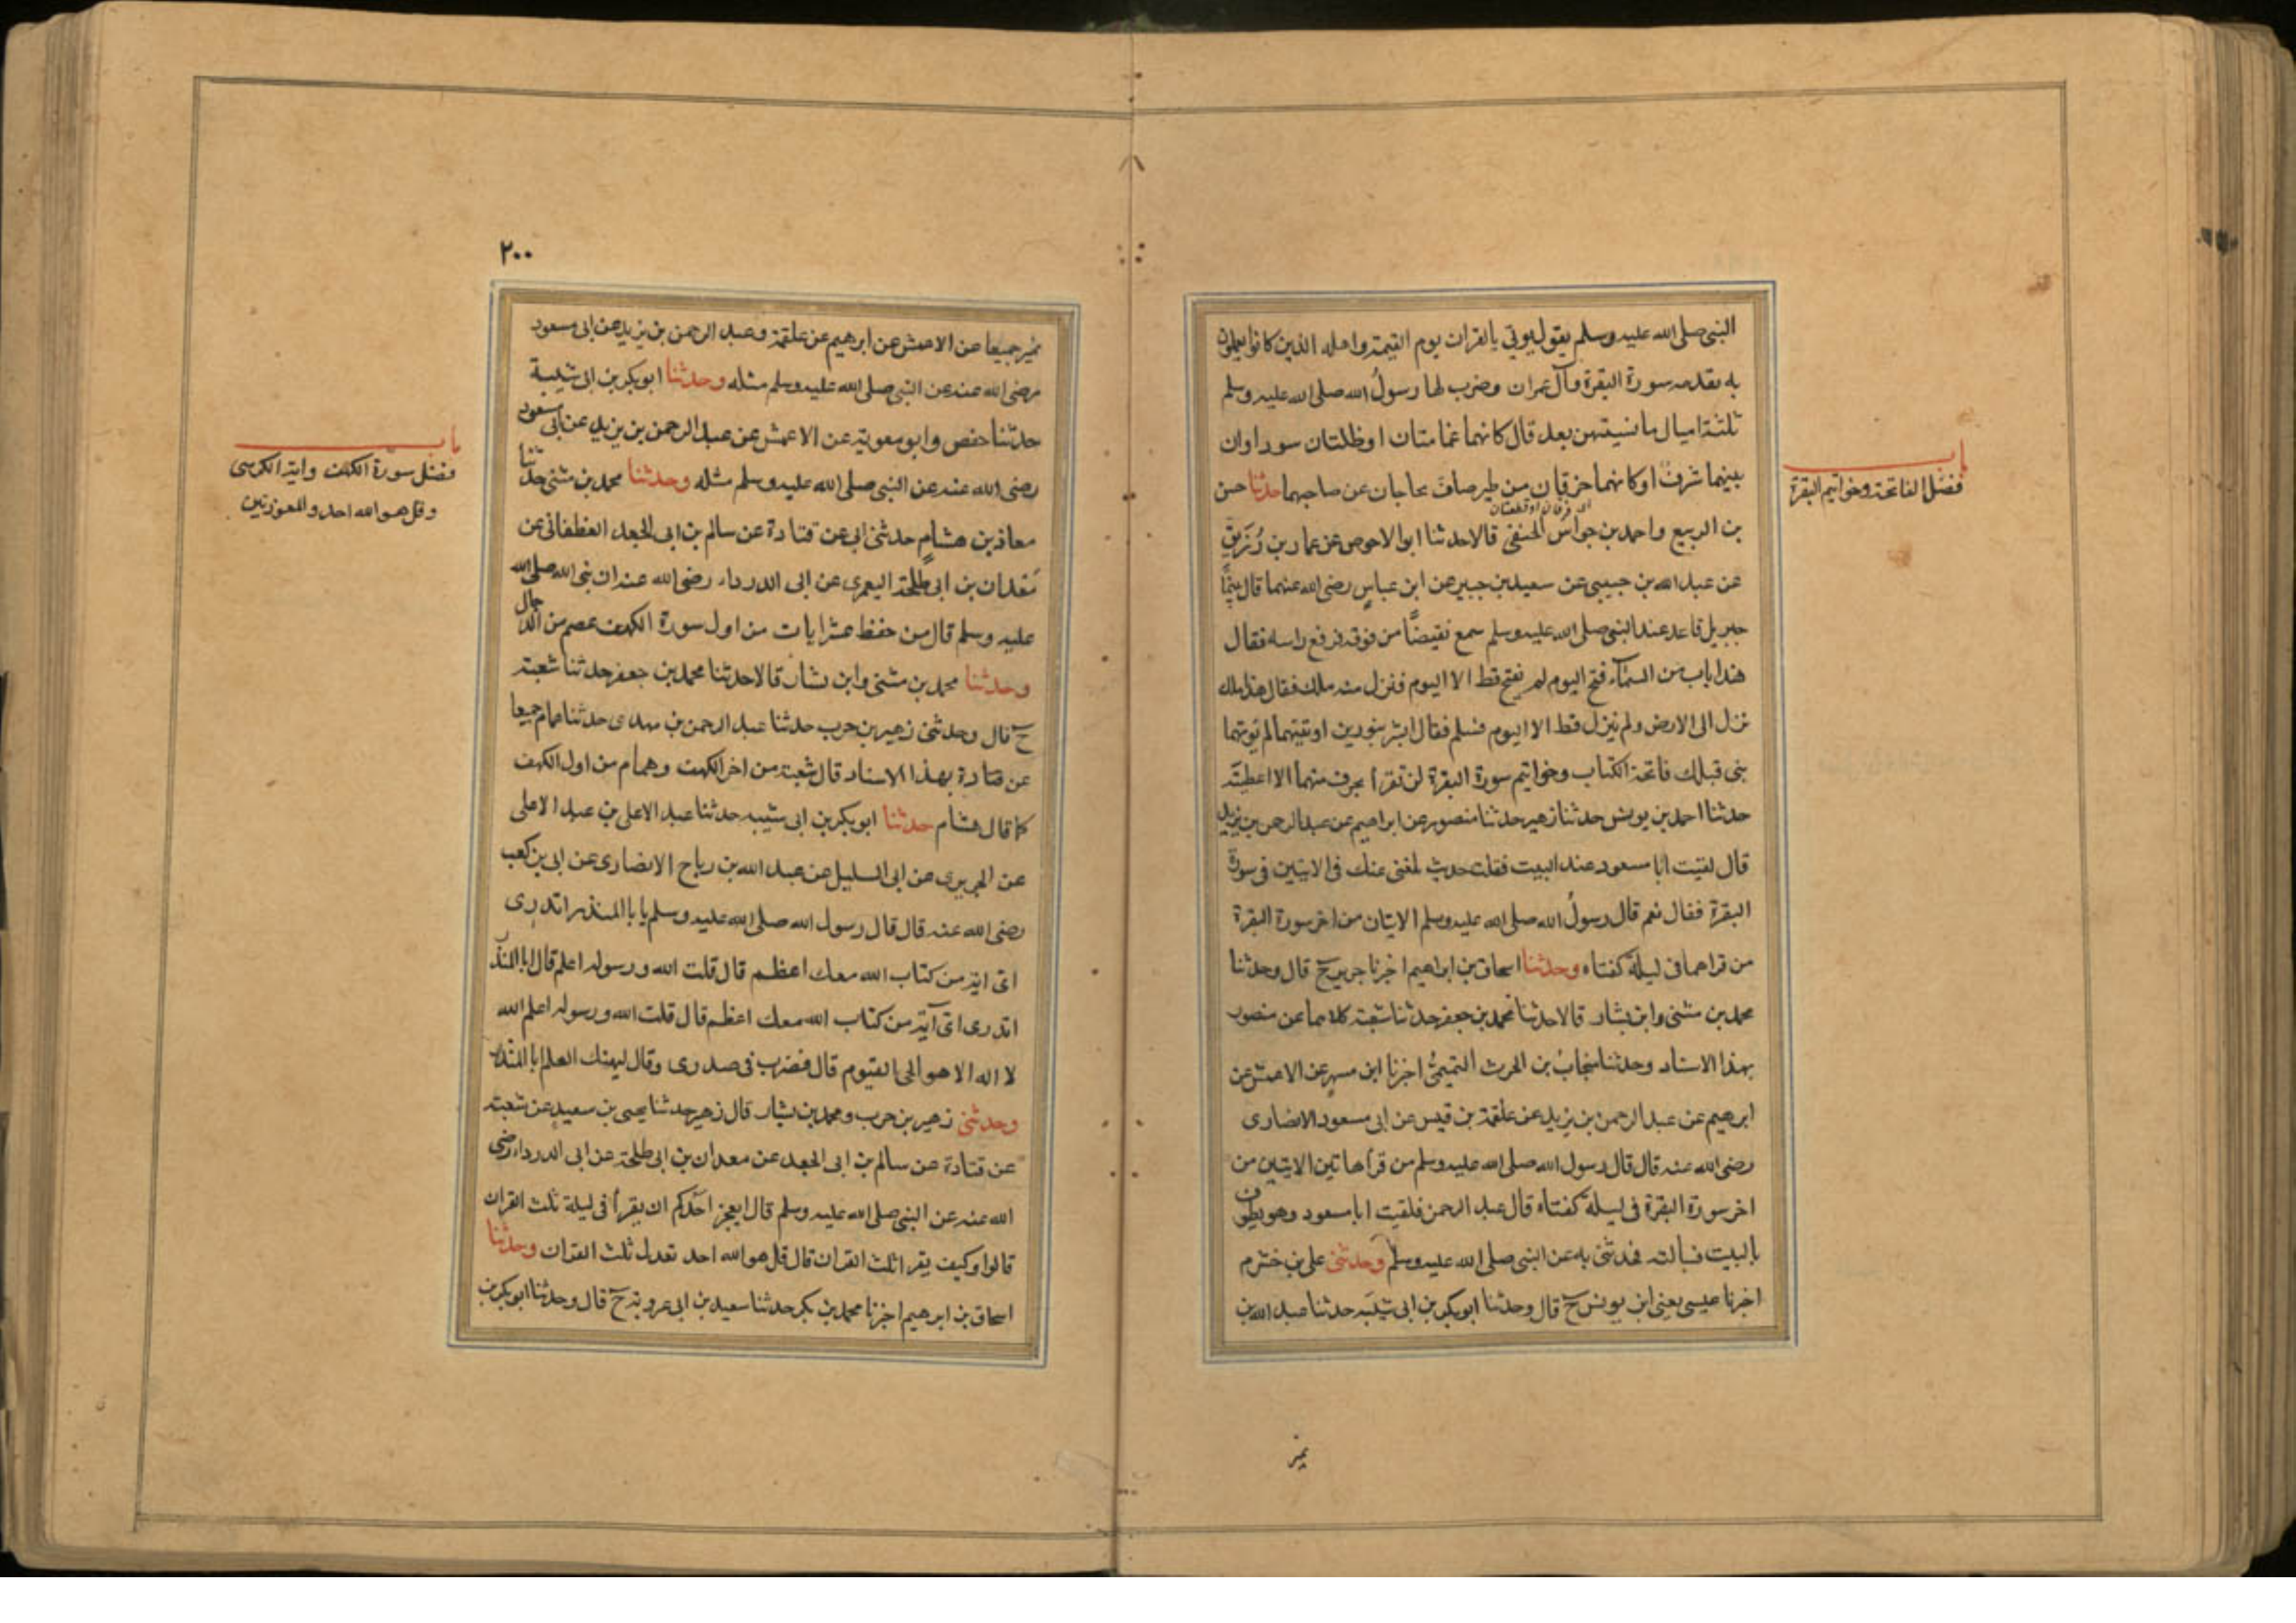 النبي صلى الله عليه وسلم يقول يوتي بالقران يوم القيمة واهله الذين كانوا يعملون
به تقدمه سورة البقرة وآل عمران وضرب لها رسولُ الله صلى الله عليه وسلم
ثلثة اميال ما نسيتهن بعد قال كانهما غمامتان او ظلتان سوداوان
بينهما شرق او كانهما حزقان من طير صاف تحاجان عن صاحبهما حدثنا حسن
بن الربيع واحمد بن جواس الحنفي قالا حدثنا ابو الاحوص عن عمار بن رُزَيق
عن عبد الله بن عيسى عن سعيد بن جبير عن ابن عباسٍ رضي الله عنهما قال بينما
جبريل قاعد عند النبي صلى الله عليه وسلم سمع نقيضًا من فوقه فرفع راسه فقال
هذا باب من السمآء فتح اليوم لم يفتح قط الا اليوم فنزل منه ملك فقال هذا ملك
نزل الى الارض ولم ينزل قط الا اليوم فسلم فقال ابشر بنورين اوتيتهما لم يوتهما
نبي قبلك فاتحة الكتاب وخواتيم سورة البقرة لن تقرأ بحرف منهما الا اعطيته
حدثنا احمد بن يونس حدثنا زهير حدثنا منصور عن ابراهيم عن عبد الرحمن بن يزيد
قال لقيت ابا مسعود عند البيت فقلت حديث بلغني عنك في الايتين في سورة
البقرة فقال نعم قال رسولُ الله صلى الله عليه وسلم الايتان من اخر سورة البقرة
من قراهما في ليلة كفتاه وحدثنا اسحاق بن ابراهيم اخبرنا جرير ح قال وحدثنا
محمد بن مثنى وابن بشار قالا حدثنا محمد بن جعفر حدثنا شعبة كلاهما عن منصور
بهذا الاسناد وحدثنا منجابُ بن الحرث التميميُّ اخبرنا ابن مسهر عن الاعمش عن
ابرهيم عن عبد الرحمن بن يزيد عن علقمة بن قيس عن ابي مسعود الانصاري
رضي الله عنه قال قال رسول الله صلى الله عليه وسلم من قرأ هاتين الايتين من
اخر سورة البقرة في ليلة كفتاه قال عبد الرحمن فلقيت ابا مسعود وهو يطوف
بالبيت فسالته فحدثني به عن النبي صلى الله عليه وسلم وحدثني علي بن خشرم
اخبرنا عيسى يعني ابن يونس ح قال وحدثنا ابو بكر بن ابي شيبة حدثنا عبد الله بن
باب
فضل الفاتحة وخواتيم البقرة
نمير
٢٠٠
نمير جميعا عن الاعمش عن ابرهيم عن علقمة وعبد الرحمن بن يزيد عن ابي مسعود
رضي الله عنه عن النبي صلى الله عليه وسلم مثله وحدثنا ابو بكر بن ابي شيبة
حدثنا حفص وابو معوية عن الاعمش عن عبد الرحمن بن يزيد عن ابي مسعود
رضي الله عنه عن النبي صلى الله عليه وسلم مثله وحدثنا محمد بن مثنى حدثنا
معاذ بن هشامٍ حدثني ابي عن قتادة عن سالم بن ابي الجعد الغطفاني عن
مَعدان بن ابي طلحة اليعمري عن ابي الدرداء رضي الله عنه ان نبي الله صلى الله
عليه وسلم قال من حفظ عشر ايات من اول سورة الكهف عصم من الدجال
وحدثنا محمد بن مثنى وابن بشار قالا حدثنا محمد بن جعفر حدثنا شعبة
ح قال وحدثني زهير بن حرب حدثنا عبد الرحمن بن مهدي حدثنا همام جميعا
عن قتادة بهذا الاسناد قال شعبة من اخر الكهف وهمام من اول الكهف
كما قال هشام حدثنا ابو بكر بن ابي شيبه حدثنا عبد الاعلى بن عبد الاعلى
عن الجريري عن ابي السليل عن عبد الله بن رباح الانصاري عن ابي بن كعب
رضي الله عنه قال قال رسول الله صلى الله عليه وسلم يا با المنذر اتدري
اي اية من كتاب الله معك اعظم قال قلت الله ورسوله اعلم قال ابا المنذر
اتدري اي آية من كتاب الله معك اعظم قال قلت الله ورسوله اعلم الله
لا اله الا هو الحي القيوم قال فضرب في صدري وقال ليهنك العلم ابا المنذر
وحدثني زهير بن حرب ومحمد بن بشار قال زهير حدثنا يحيى بن سعيد عن شعبة
عن قتادة عن سالم بن ابي الجعد عن معدان بن ابي طلحة عن ابي الدرداء رضي
الله عنه عن النبي صلى الله عليه وسلم قال ايعجز احدكم ان يقرأ في ليلة ثلث القران
قالوا وكيف يقرا ثلث القران قال قل هو الله احد تعدل ثلث القران وحدثنا
اسحاق بن ابرهيم اخبرنا محمد بن بكر حدثنا سعيد بن ابي عروبة ح قال وحدثنا ابو بكر بن
باب
فضل سورة الكهف واية الكرسي
وقل هو الله احد والمعوذتين